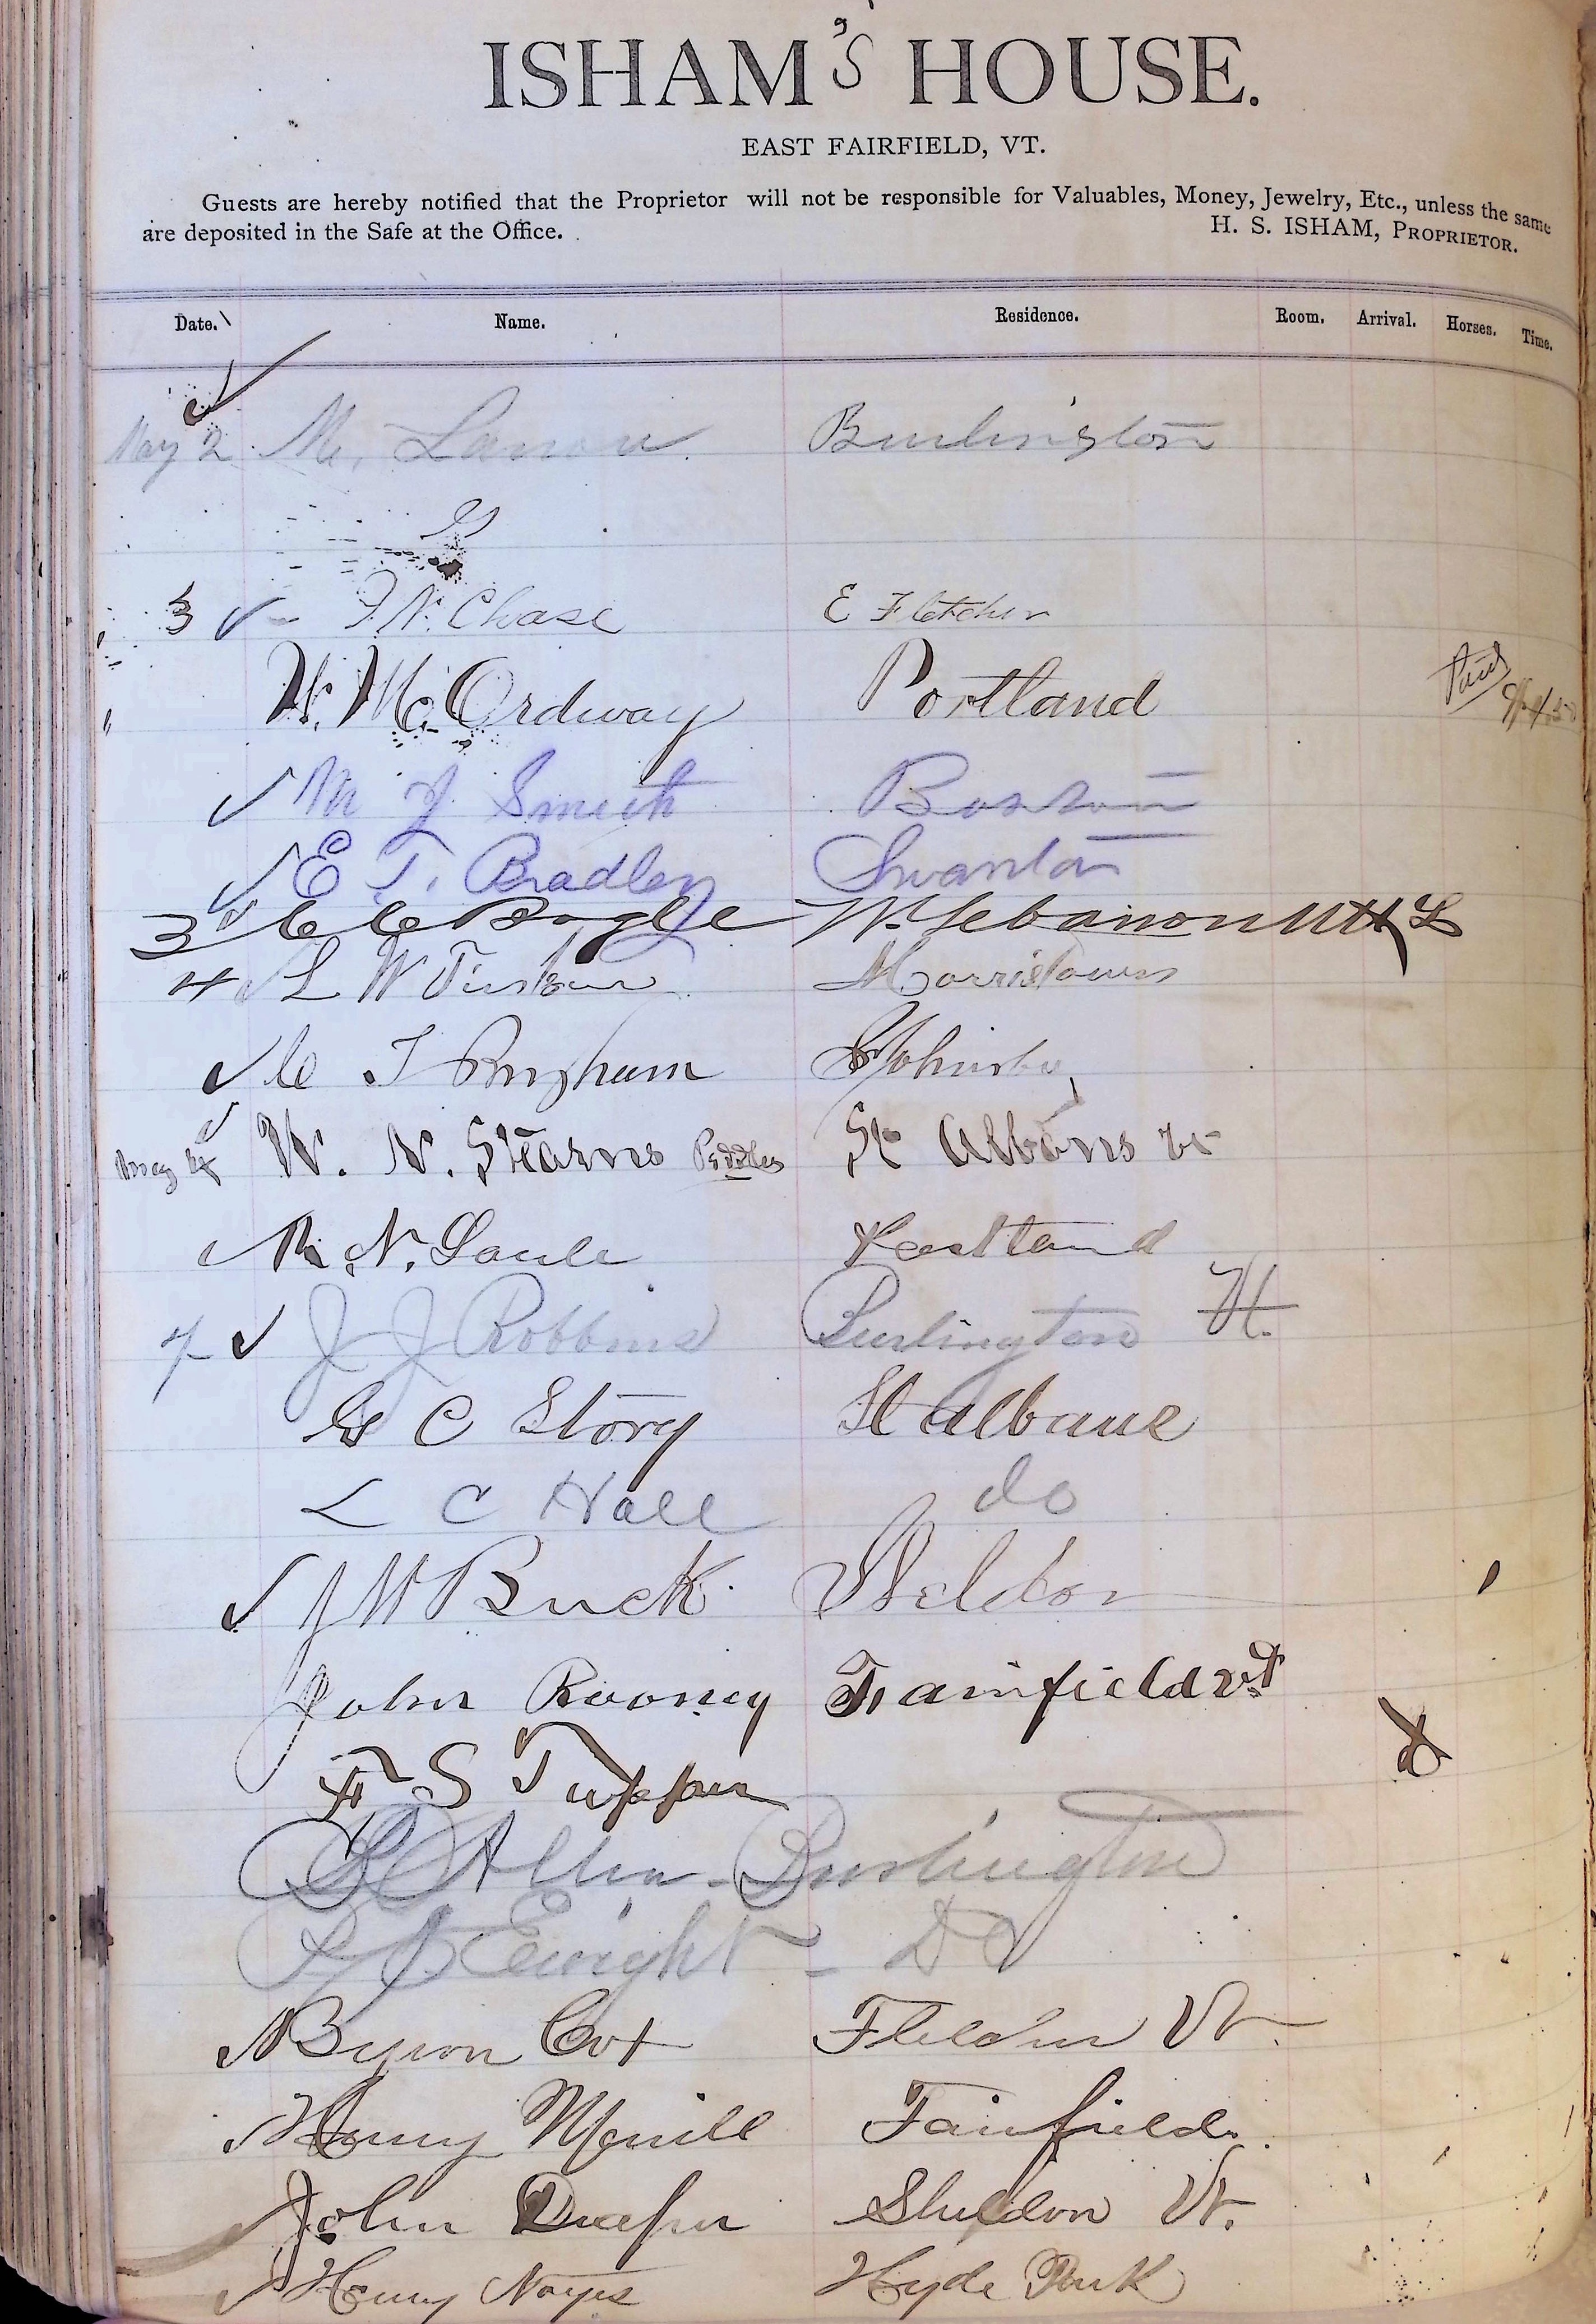 ISHAM'S HOUSE.
EAST FAIRFIELD, VT.
Guests are hereby notified that the Proprietor will not be responsible for Valuables, Money, Jewelry, Etc., unless the same
are deposited in the Safe at the Office.
H. S. ISHAM, PROPRIETOR.
Date. Name. Residence. Room. Arrival. Horses. Time.
May 2 M. Burlington
3 F. N. Chase E Fletcher
W. M. Ordway Portland Paid
M J Smith Boston
E T. Bradley Swanton
3 C C Bogle W. Lebanon N H
4 L W Morristown
C T Bingham St Johnsby
May 4 W. N. Stearns Peddler St Albans Vt
R. N. Soule
7 J J Robbins Burlington Vt.
G C Story St Albans
L C Hall do
J W Buck Sheldon
John Rooney Fairfield Vt
F S Tupper
Allen - Burlington
Enright - Do
Byron Cox Fletcher Vt.
Henry Merrill Fairfield.
John Draper Sheldon Vt.
Henry Noyes Hyde Park